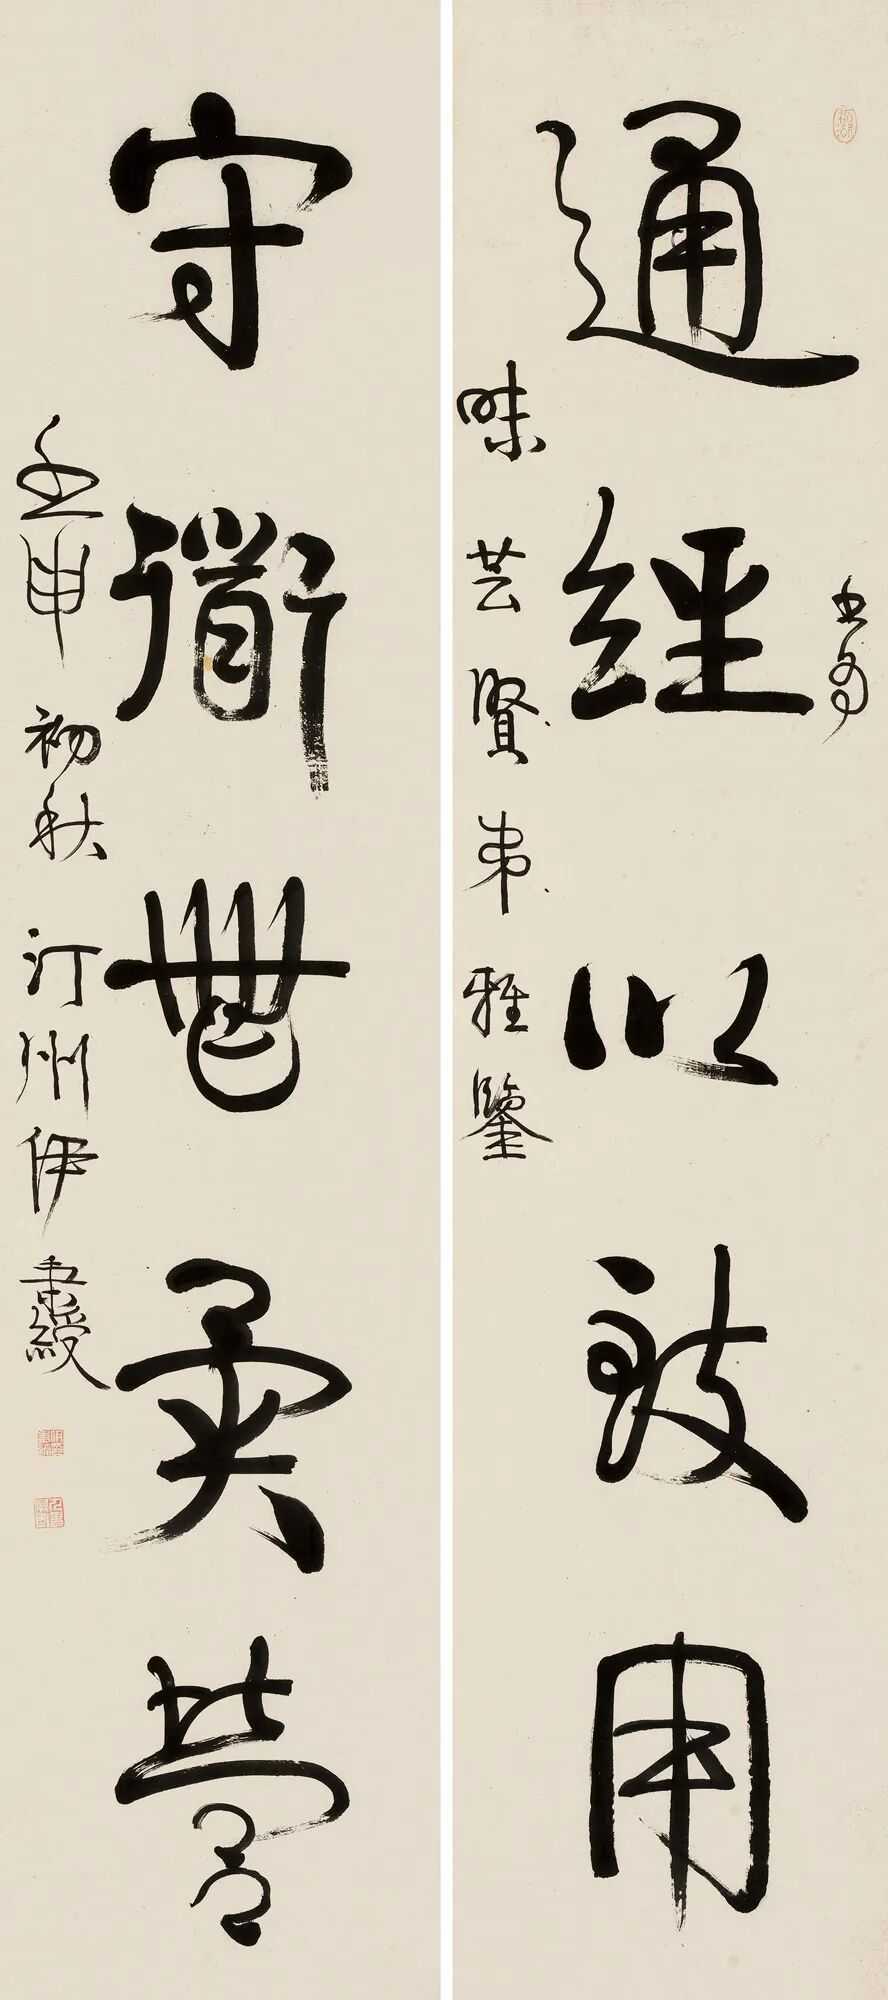 書為
通經以致用
味芸賢弟雅鑒
守衜無營
壬申初秋汀州伊秉綬